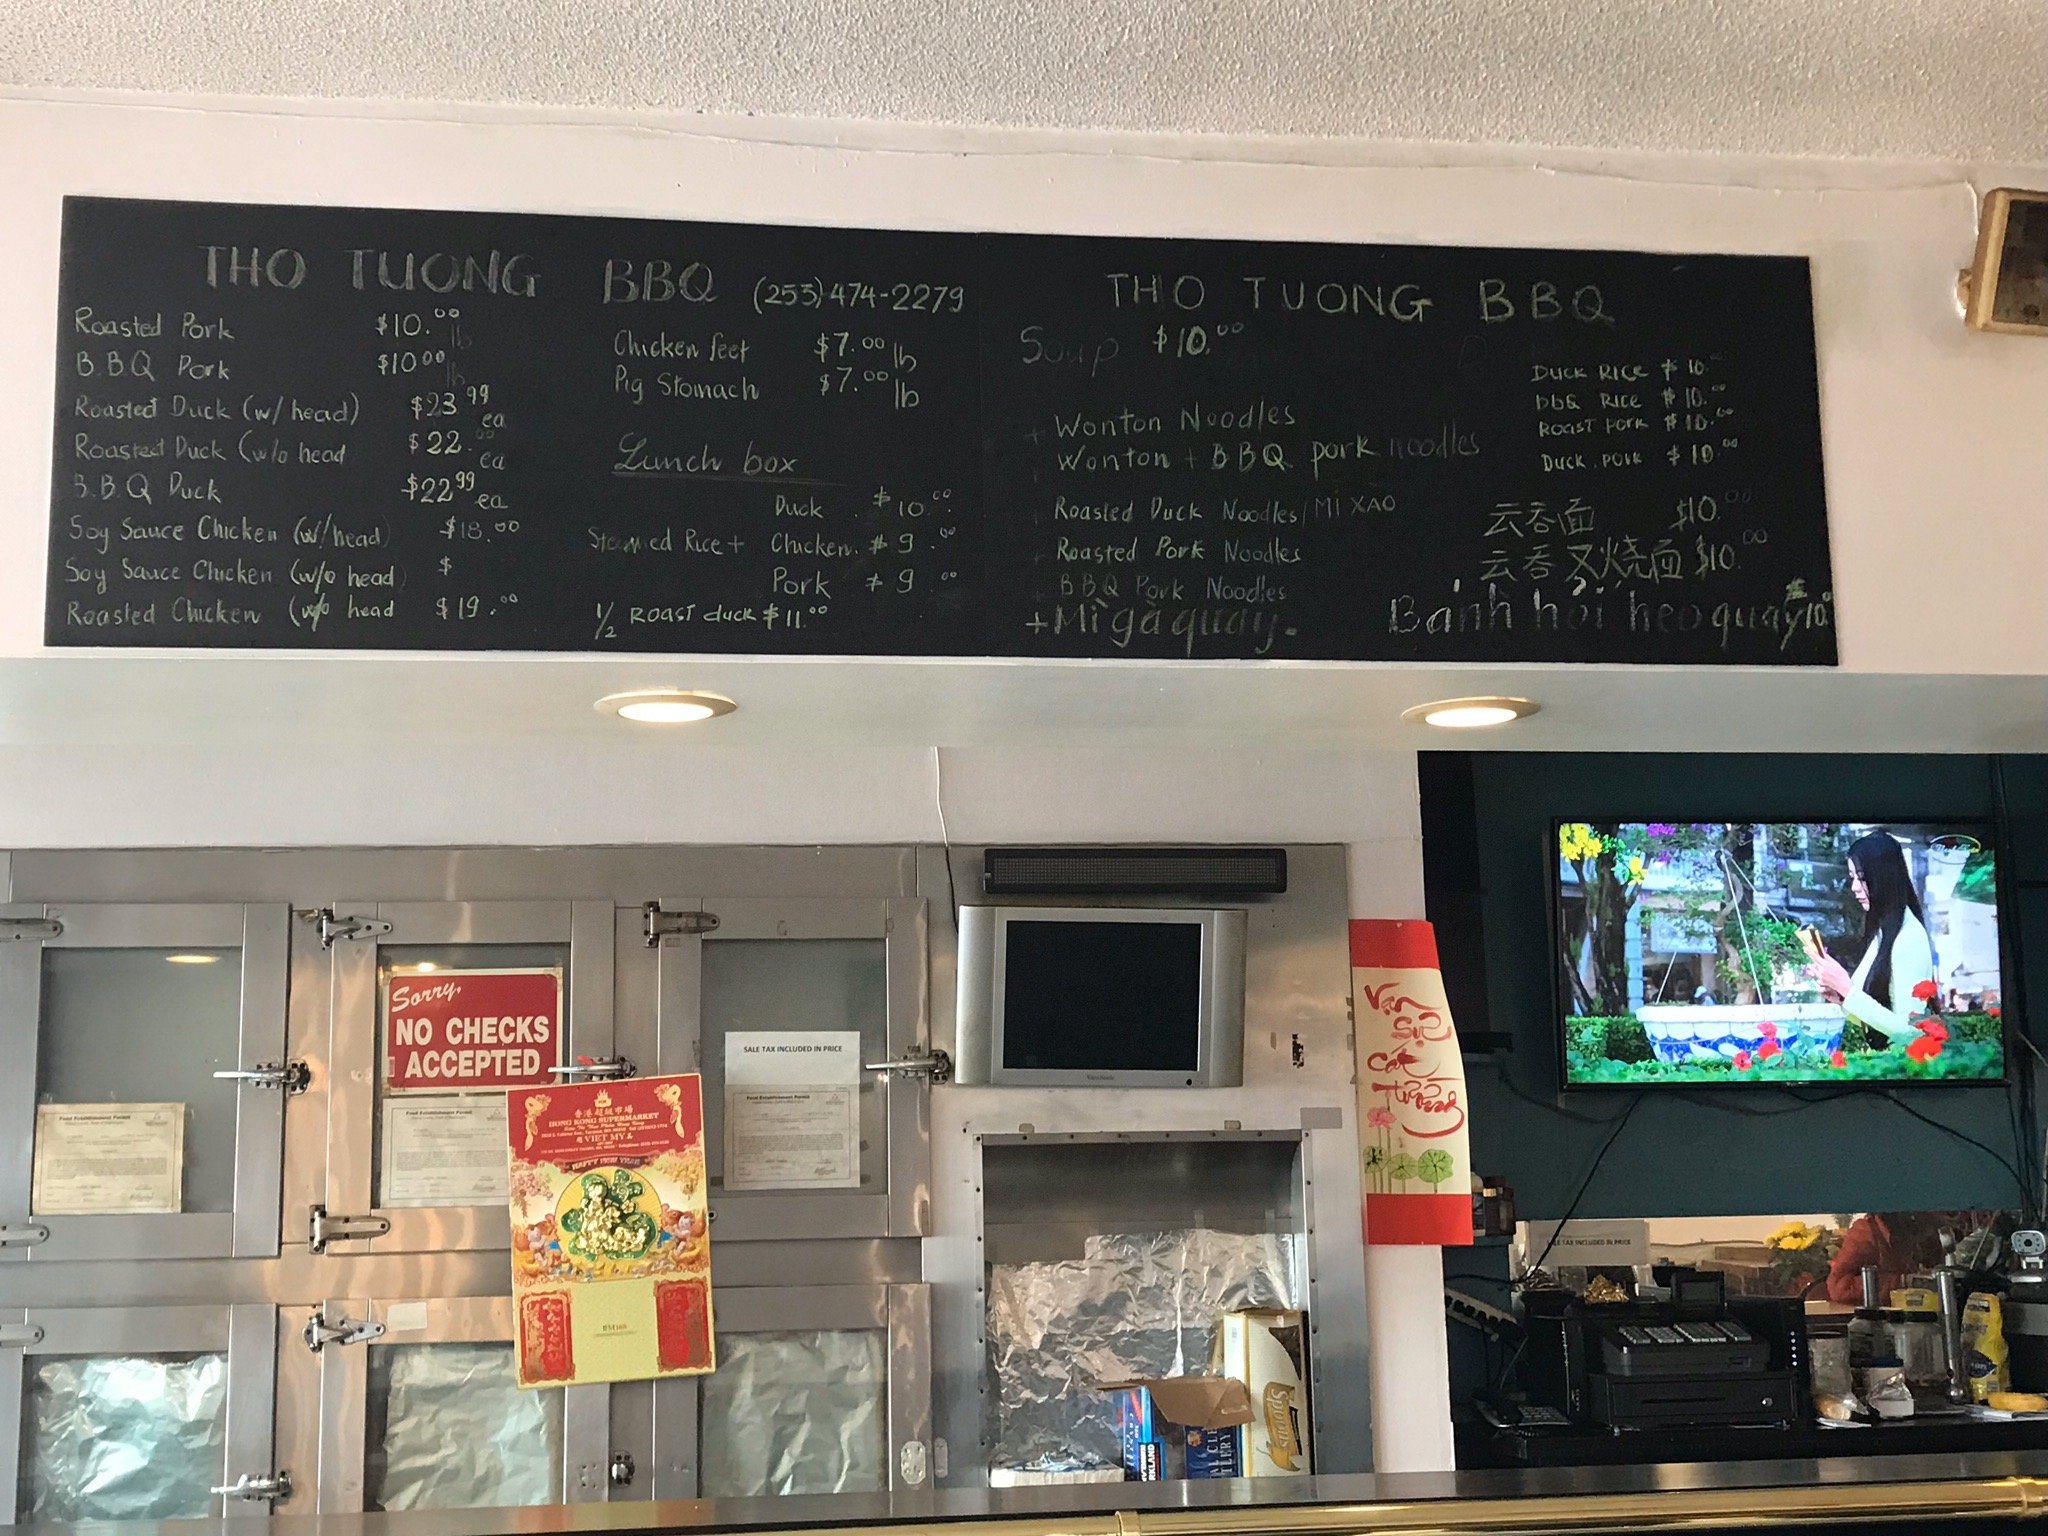 THO TUONG BBQ (253) 474-2279
Roasted Pork $10.00 lb
B.B.Q Pork $10.00 lb
Roasted Duck (w/ head) $23.99 ea
Roasted Duck (w/o head $22.00 ea
B.B.Q Duck $22.99 ea
Soy Sauce Chicken (w/head) $18.00
Soy Sauce Chicken (w/o head) $
Roasted Chicken (w/o head $19.00
Chicken feet $7.00 lb
Pig Stomach $7.00 lb
Lunch box
Duck $10.00
Steamed Rice + Chicken $9.00
Pork $9.00
1/2 Roast duck $11.00
THO TUONG BBQ
Soup $10.00
+ Wonton Noodles
Wonton + BBQ pork noodles
+ Roasted Duck Noodles/MÌ XÀO
+ Roasted Pork Noodles
BBQ Pork Noodles
+ Mì gà quay.
DUCK RICE $10.00
BBQ RICE $10.00
ROAST PORK $10.00
DUCK. PORK $10.00
云吞面 $10.00
云吞叉烧面 $10.00
Bánh hỏi heo quay $10.00
Sorry,
NO CHECKS
ACCEPTED
SALE TAX INCLUDED IN PRICE
Food Establishment Permit
Food Establishment Permit
Food Establishment Permit
香港超級市場
HONG KONG SUPERMARKET
VIET MY
HAPPY NEW YEAR
Vạn
Sự
Cát
Tường
ViewSonic
SALE TAX INCLUDED IN PRICE
Spoons
KIRKLAND